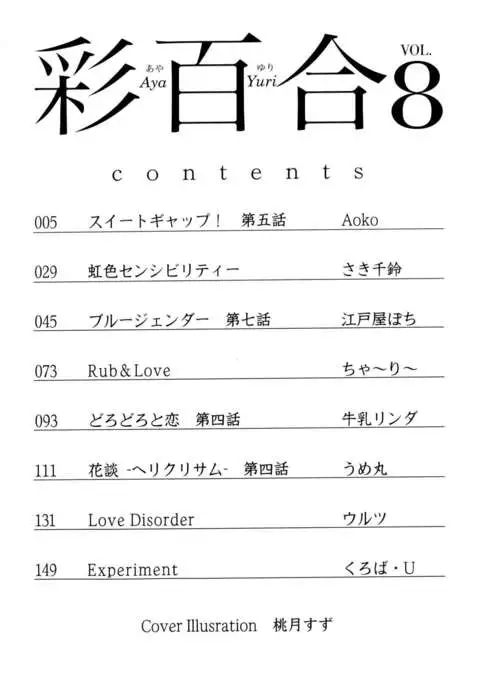 彩百合 VOL. 8
あや Aya ゆり Yuri
contents
005 スイートギャップ！ 第五話 Aoko
029 虹色センシビリティー さき千鈴
045 ブルージェンダー 第七話 江戸屋ぽち
073 Rub&Love ちゃ～り～
093 どろどろと恋 第四話 牛乳リンダ
111 花談 -ヘリクリサム- 第四話 うめ丸
131 Love Disorder ウルツ
149 Experiment くろば・U
Cover Illusration 桃月すず